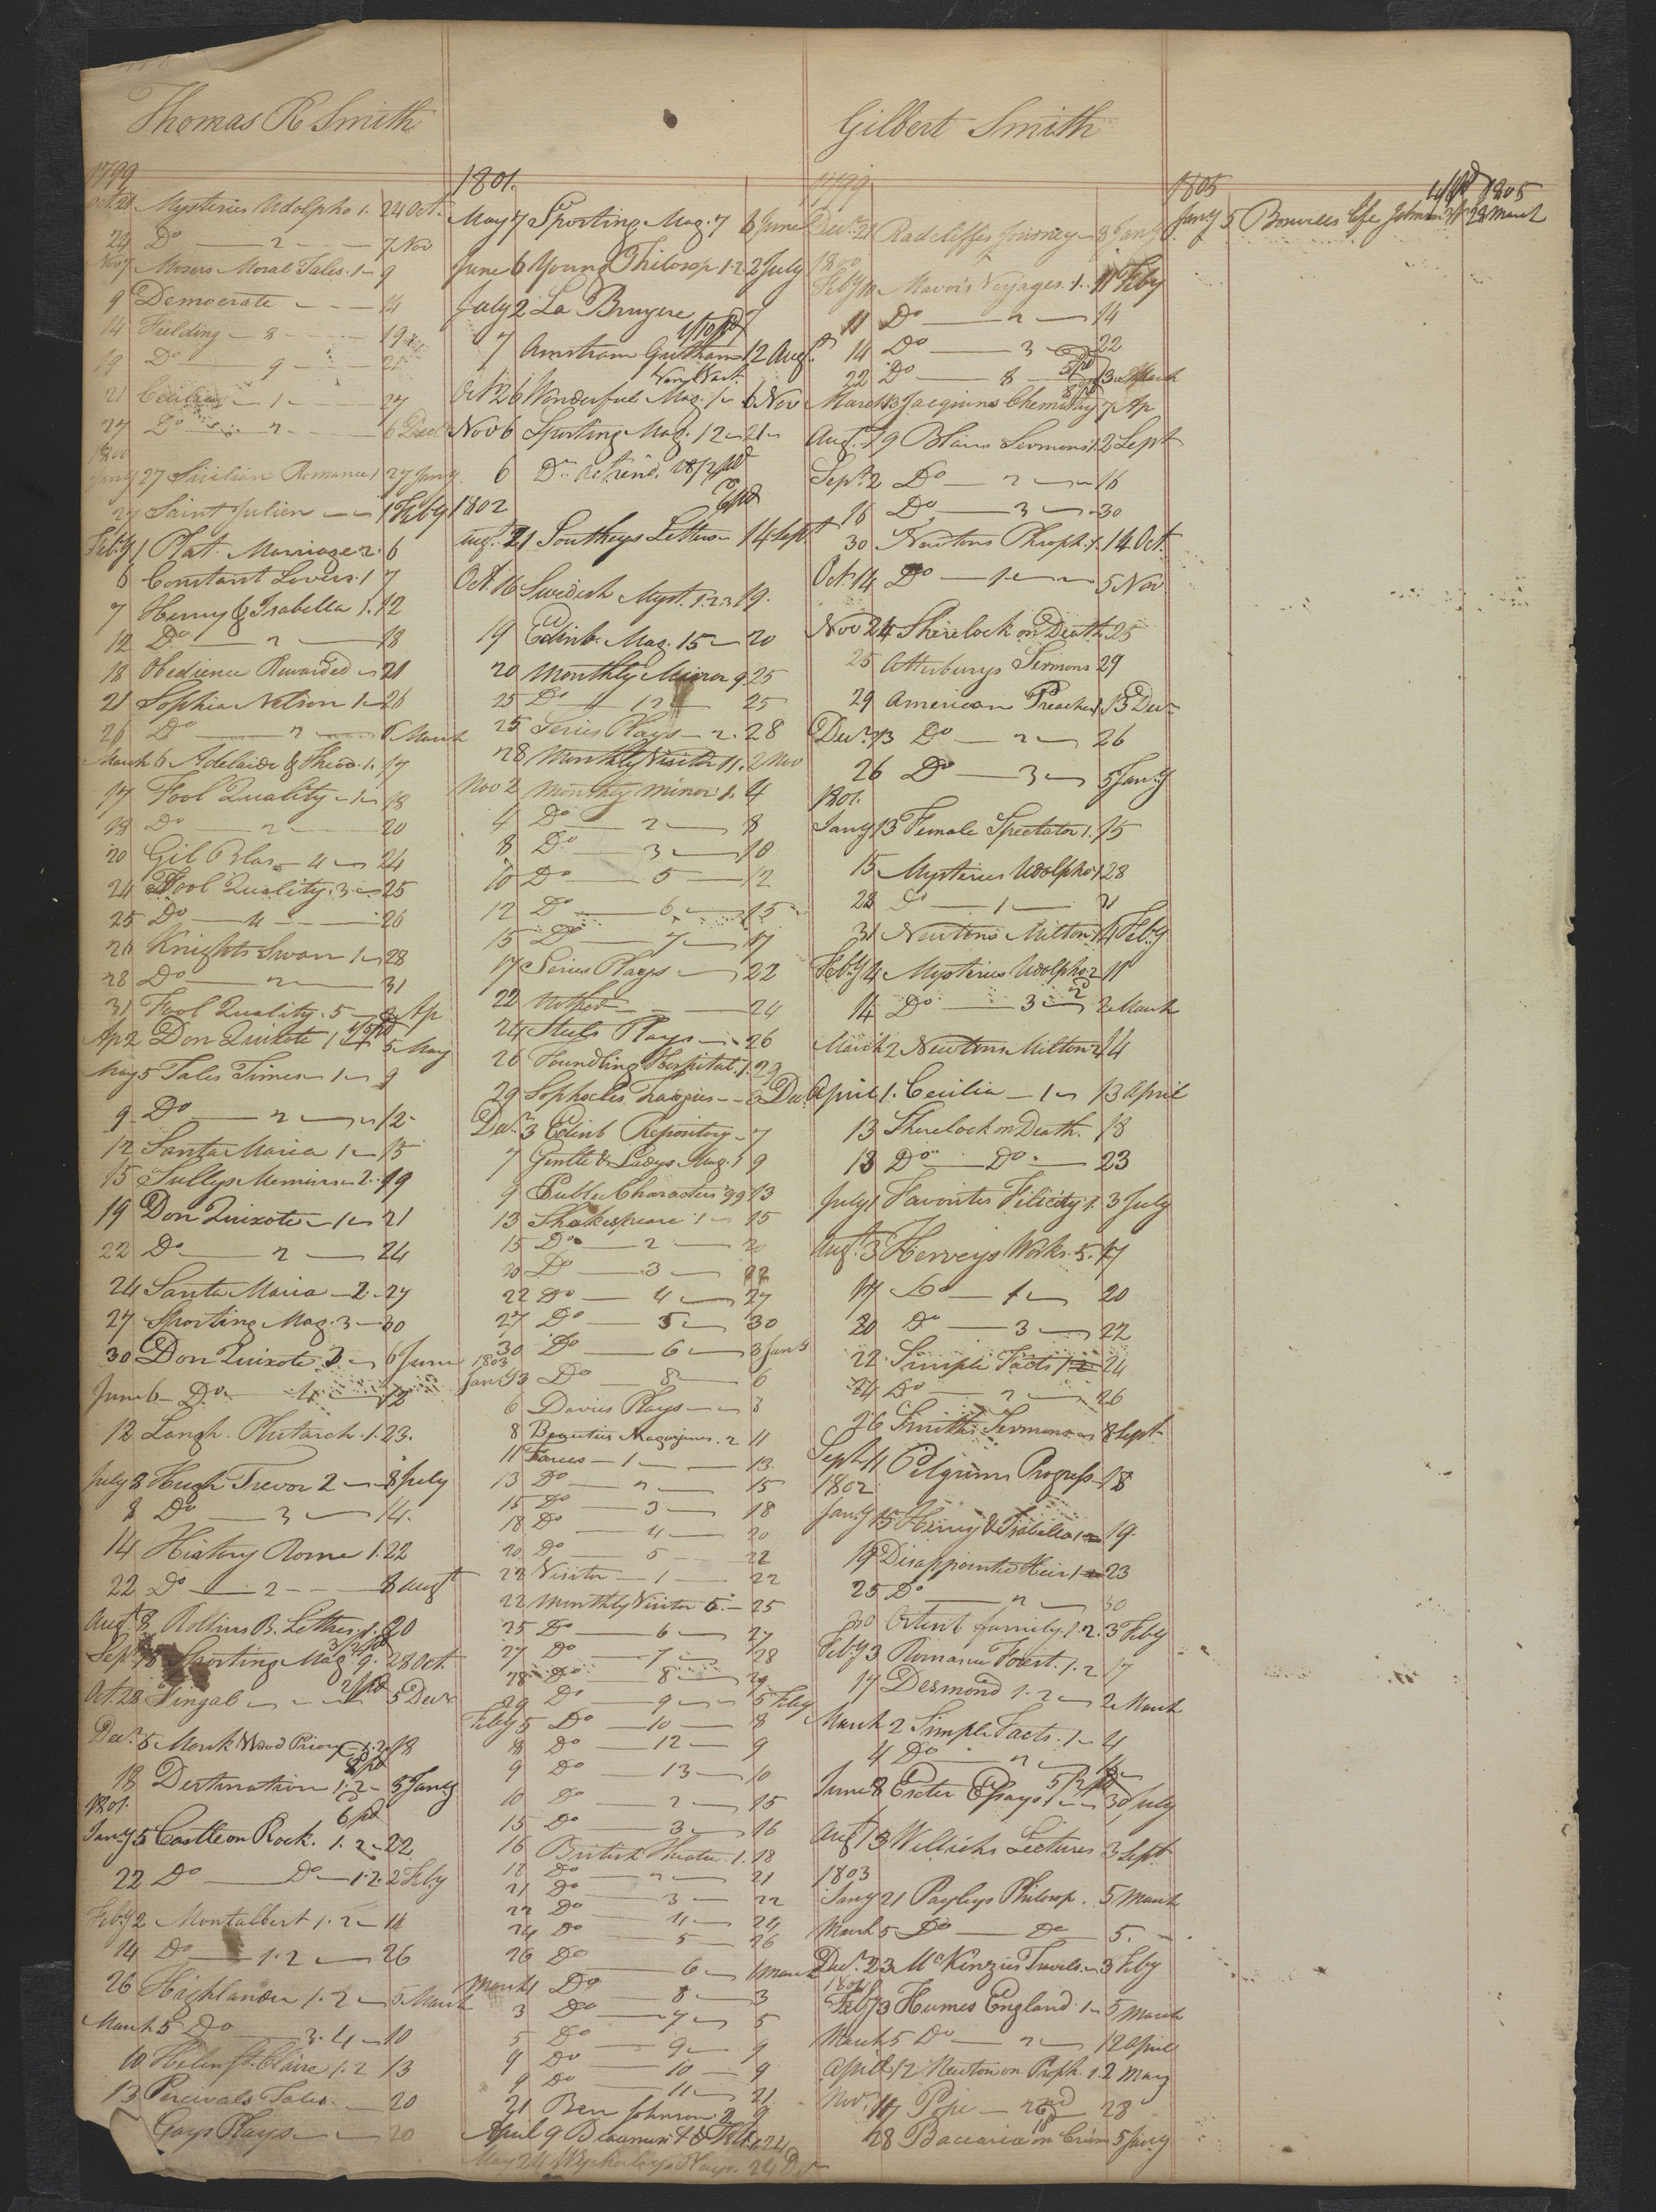 Thomas R Smith
1799
Octr 21 Mysteries Udolpho 1. 24 Oct.
24 Do — 2 — 7 Nov
Nov 7 Mosers Moral Tales. 1 — 9
9 Democrate — 14
14 Fielding — 8 — 19
19 Do — 9 — 21
21 Cecilia — 1 — 27
27 Do — 2 — 6 Decr
1800
Jany 27 Sicilian Romance 1 27 Jany
27 Saint Julien — 1 Feby
Feby 1 Plat. Marriage 2. 6
6 Constant Lovers. 1 7
7 Henry & Isabella 1. 12
12 Do — 2 — 18
18 Obedience Rewarded — 21
21 Sophia Nelson 1 — 26
26 Do — 2 — 6 March
March 6 Adelaide & Theod. 1. 17
17 Fool Quality — 1 — 18
18 Do — 2 — 20
20 Gil Blas — 4 — 24
24 Fool Quality. 3 — 25
25 Do — 4 — 26
26 Knights Swan 1 — 28
28 Do — 2 — 31
31 Fool Quality. 5 — 2 Ap
Ap 2 Don Quixote 1 5 May
May 5 Tales Times 1 — 9
9 Do — 2 — 12
12 Santa Maria 1 — 15
15 Sullys Memoirs 2. 19
19 Don Quixote — 1 — 21
22 Do — 2 — 24
24 Santa Maria — 2 — 27
27 Sporting Mag. 3 — 30
30 Don Quixote 3 — 6 June
June 6 — Do — 4 — 12
12 Langh. Plutarch. 1. 23.
July 3 Hugh Trevor 2 — 8 July
8 Do — 3 — 14.
14 History Rome 1. 22
22 Do — 2 — 8 Augt
Augt 8 Rollins B. Lettres. 1. 20
3/2 pd
Sept 18 Sporting Mag. 9. 28 Oct.
2/ pd
Oct. 28 Fingal — 5 Decr
Decr 5 Monk Wood Priory 1. 2 18
18 Destination 1. 2 — 5 Jany
1801.
6 pd
Jany 5 Castle on Rock. 1. 2 — 22.
22 Do — Do — 1. 2. 2 Feby
Feby 2 Montalbert 1. 2 — 14
14 Do — 1. 2 — 26
26 Highlander 1. 2 — 5 March
March 5 Do — 3. 4 — 10
10 Helen St. Claire 1. 2 13
13 Percivals Tales — 20
Gays Plays — 20
1801.
May 7 Sporting Mag. 7 6 June
June 6 Young Philosop 1. 2. 2 July
July 2 La Bruyere 7
1/10 pd
7 12 Augt
Oct 26 Wonderful Mag. 1 — 6 Nov
Nov 6 Sporting Mag. 12 — 21
6 Do retaind. 18/2 pd
1802
6 pd
Augt 21 Southeys Letters — 14 Sept
Oct. 16 Swedish Myst. 1. 2. 3 19.
19 Edinb. Mag. 15 — 20
20 Monthly Mirror 9. 25
25 Do 12 25
25 Series Plays — 2. 28
28 Monthly Visitor 11. 2 Nov
Nov 2 Monthly Mirror 1. 4
4 Do — 2 — 8
8 Do — 3 — 10
10 Do — 5 — 12
12 Do — 6 — 15
15 Do — 7 — 17
17 Series Plays — 22
22 — 24
24 Steels Plays — 26
26 Foundling Hospital. 1. 29
29 Sophocles Tragies — 3 Decr
Decr 3 Edinb Repository — 7
7 Gentle & Ladys Mag. 1 9
9 Public Characters 99 13
13 Shakespeare 1 — 15
15 Do — 2 — 20
20 Do — 3 — 22
22 Do — 4 — 27
27 Do — 5 — 30
30 Do — 6 — 3 Jany
1803
Jany 3 Do — 8 — 6
6 Davies Plays — 8
8 Beauties Magazines. 2 11
11 Farces — 1 — 13.
13 Do — 2 — 15
15 Do — 3 — 18
18 Do — 4 — 20
20. Do — 5 — 22
22 Visitor — 1 — 22
22 Monthly Visitor 5. — 25
25 Do — 6 — 27
27 Do — 7 — 28
28 Do — 8 — 29
29 Do — 9 — 5 Feby
Feby 5 Do — 10 — 8
8 Do — 12 — 9
9 Do — 13 — 10
10 Do — 2 — 15
15 Do — 3 — 16
16 British Theatre. 1. 18
18 Do — 2 — 21
21 Do — 3 — 22
22 Do — 4 — 24
24 Do — 5 — 26
26 Do — 6 — 1 March
March 1 Do — 8 — 3
3 Do — 7 — 5
5 Do — 9 — 9
9 Do — 10 — 9
9 Do — 11 — 21
21 Ben Johnson. 2 9
April 9 24
May 24 Wycherleys Plays. 24
Gilbert Smith
1799
Decr 21 Radcliffes Journey — 8 Jany
1800
Feby 10 Mavors Voyages. 1. 11 Feby
11 Do — 2 — 14
14 Do — 3 — 22
22 Do — 8 — 13 March
March 13 Jacquins Chemistry 7 Ap
Augt 19 Blairs Sermons 1. 2 Sept
Sept. 2 Do — 2 — 16
16 Do — 3 — 30
30 Newtons Proph. 1. 14 Oct.
Oct. 14 Do — 1 — 5 Nov
Nov 24 Sherelock on Death 25
25 Atterburys Sermons 29
29 American Preacher 1 13 Decr
Decr 13 Do — 2 — 26
26 Do — 3 — 5 Jany
1801.
Jany 13 Female Spectator 1. 15
15 Mysteries Udolpho 1 28
28 Do — 1 — 31
31 Newtons Milton 1 4 Feby
Feby 4 Mysteries Udolpho 2 11
14 Do — 3 — 2 March
March 2 Newtons Milton 2 14
April 1. Cecilia — 1 — 13 April
13 Sherelock on Death. 18
18 Do — Do — 23
July 1 Favorites Felicity 1. 3 July
Augt 3 Herveys Works. 5. 17
17 Do — 1 — 20
20 Do — 3 — 22
22 Simple Facts 1 24
24 Do — 2 — 26
26 Smiths Sermons — 8 Sept
Sept 11 Pilgrims Progress 18
1802
Jany 15 Henry & Isabella 1 — 19.
19 Disappointed Heir 1 — 23
25 Do — 2 — 30
30 Ortent family. 1. 2. 3 Feby
Feby 3 Romance Forest. 1. 2 17
17 Desmond 1. 2 — 2 March
March 2 Simple Facts. 1 — 4
4 Do — 2 —
5/2 pd
June 8 Exeter Essays 1 — 30 July
Augt 13 Willichs Lectures 3 Sept
1803
Jany 21 Payleys Philosop. 5 March
March 5 Do — Do 5.
Decr 23 McKenzies Travels. — 3 Feby
1804
Feby 3 Humes England. 1 — 5 March
March 5 Do — 2 — 12 April
April 12 Newton on Proph. 1. 2 May
Novr 17 Pope — 28
28 Baccaria on Crims 5 Jany
1805
4/ pd 1805
Jany 5 Boswells life Johnson 28 March